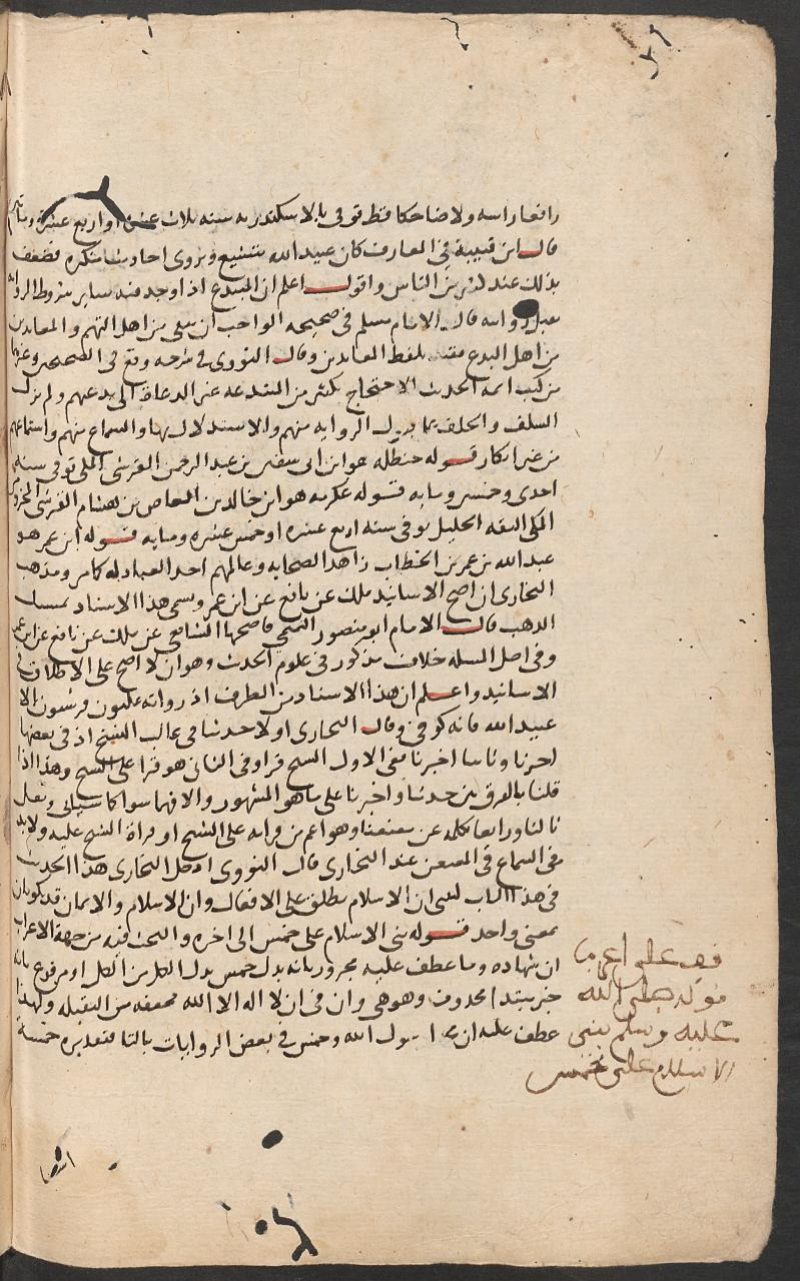 رافعا راسه ولا ضاحكا قط توفى بالاسكندريه سنه ثلاث عشره او اربع عشره ومايتين
قال ابن قتيبة في المعارف كان عبيد الله يتشيع ويروى احاديث منكره فضعف
بذلك عند كثير من الناس واقول اعلم ان المبتدع اذا وجد فيه ساير شروط الروايه
تقبل روايته قال الامام مسلم في صحيحه الواجب ان يتقى من اهل التهم والمعاندين
من اهل البدع بلفظ المعاندين وقال النووى في شرحه وقع في الصحيحين وغيرهما
من كتب ايمه الحديث الاحتجاج بكثير من المبتدعه غير الدعاة الى بدعهم ولم يزل
السلف والخلف على قبول الروايه منهم والاستدلال بها والسماع منهم واسماعهم
من غير انكار قوله حنظله هو ابن ابى سفين بن عبد الرحمن القرشى المكى توفى سنه
احدى وخمسين ومايه قوله عكرمه هو ابن خالد بن العاص بن هشام القرشى المخزومى
المكى الثقه الجليل توفى سنه اربع عشره او خمس عشره ومايه قوله ابن عمر هو
عبد الله بن عمر بن الخطاب زاهد الصحابه وعالمهم احد العبادله كما مر ومذهب
البخارى ان اصح الاسانيد ملك عن نافع عن ابن عمر ويسمى هذا الاسناد بسلسله
الذهب قال الامام ابو منصور التميمى فاصحها الشافعى عن ملك عن نافع عن ابن عمر
وفى اصل المسله خلاف مذكور فى علوم الحديث وهو ان لا اصح على الاطلاق فى
الاسانيد واعلم ان هذا الاسناد من الطرف اذ رواته مكيون قرشيون الا
عبيد الله فانه كوفى وقال البخارى اولا حدثنا فى غالب النسخ اذ فى بعضها
اخبرنا وثانيا اخبرنا ففى الاول الشيخ قرا وفى الثانى هو قرا على الشيخ وهذا اذا
قلنا بالفرق بين حدثنا واخبرنا على ما هو المشهور والا فهما سوا كما سياتى ونقل
ثالثا ورابعا بكلمه عن معنعنا وهو اعم من قرايه على الشيخ او قراة الشيخ عليه ولا بد
فى السماع فى المعنعن عند البخارى قال النووى ادخل البخارى هذا الحديث
فى هذا الباب ليبين ان الاسلام يطلق على الافعال وان الاسلام والايمان قد يكونان
بمعنى واحد قوله بنى الاسلام على خمس الى اخره والبحث فيه من جهة الاعراب
ان شهاده وما عطف عليه مجرور بانه بدل خمس بدل الكل من الكل او مرفوع بانه
خبر مبتدا محذوف وهو هى وان فى ان لا اله الا الله مخففه من الثقيله ولهذا
عطف عليه ان محمدا رسول الله وخمس فى بعض الروايات بالتا فتقديره خمسة
قف على اعراب
قوله صلى الله
عليه وسلم بنى
الاسلام على خمس
اشيا